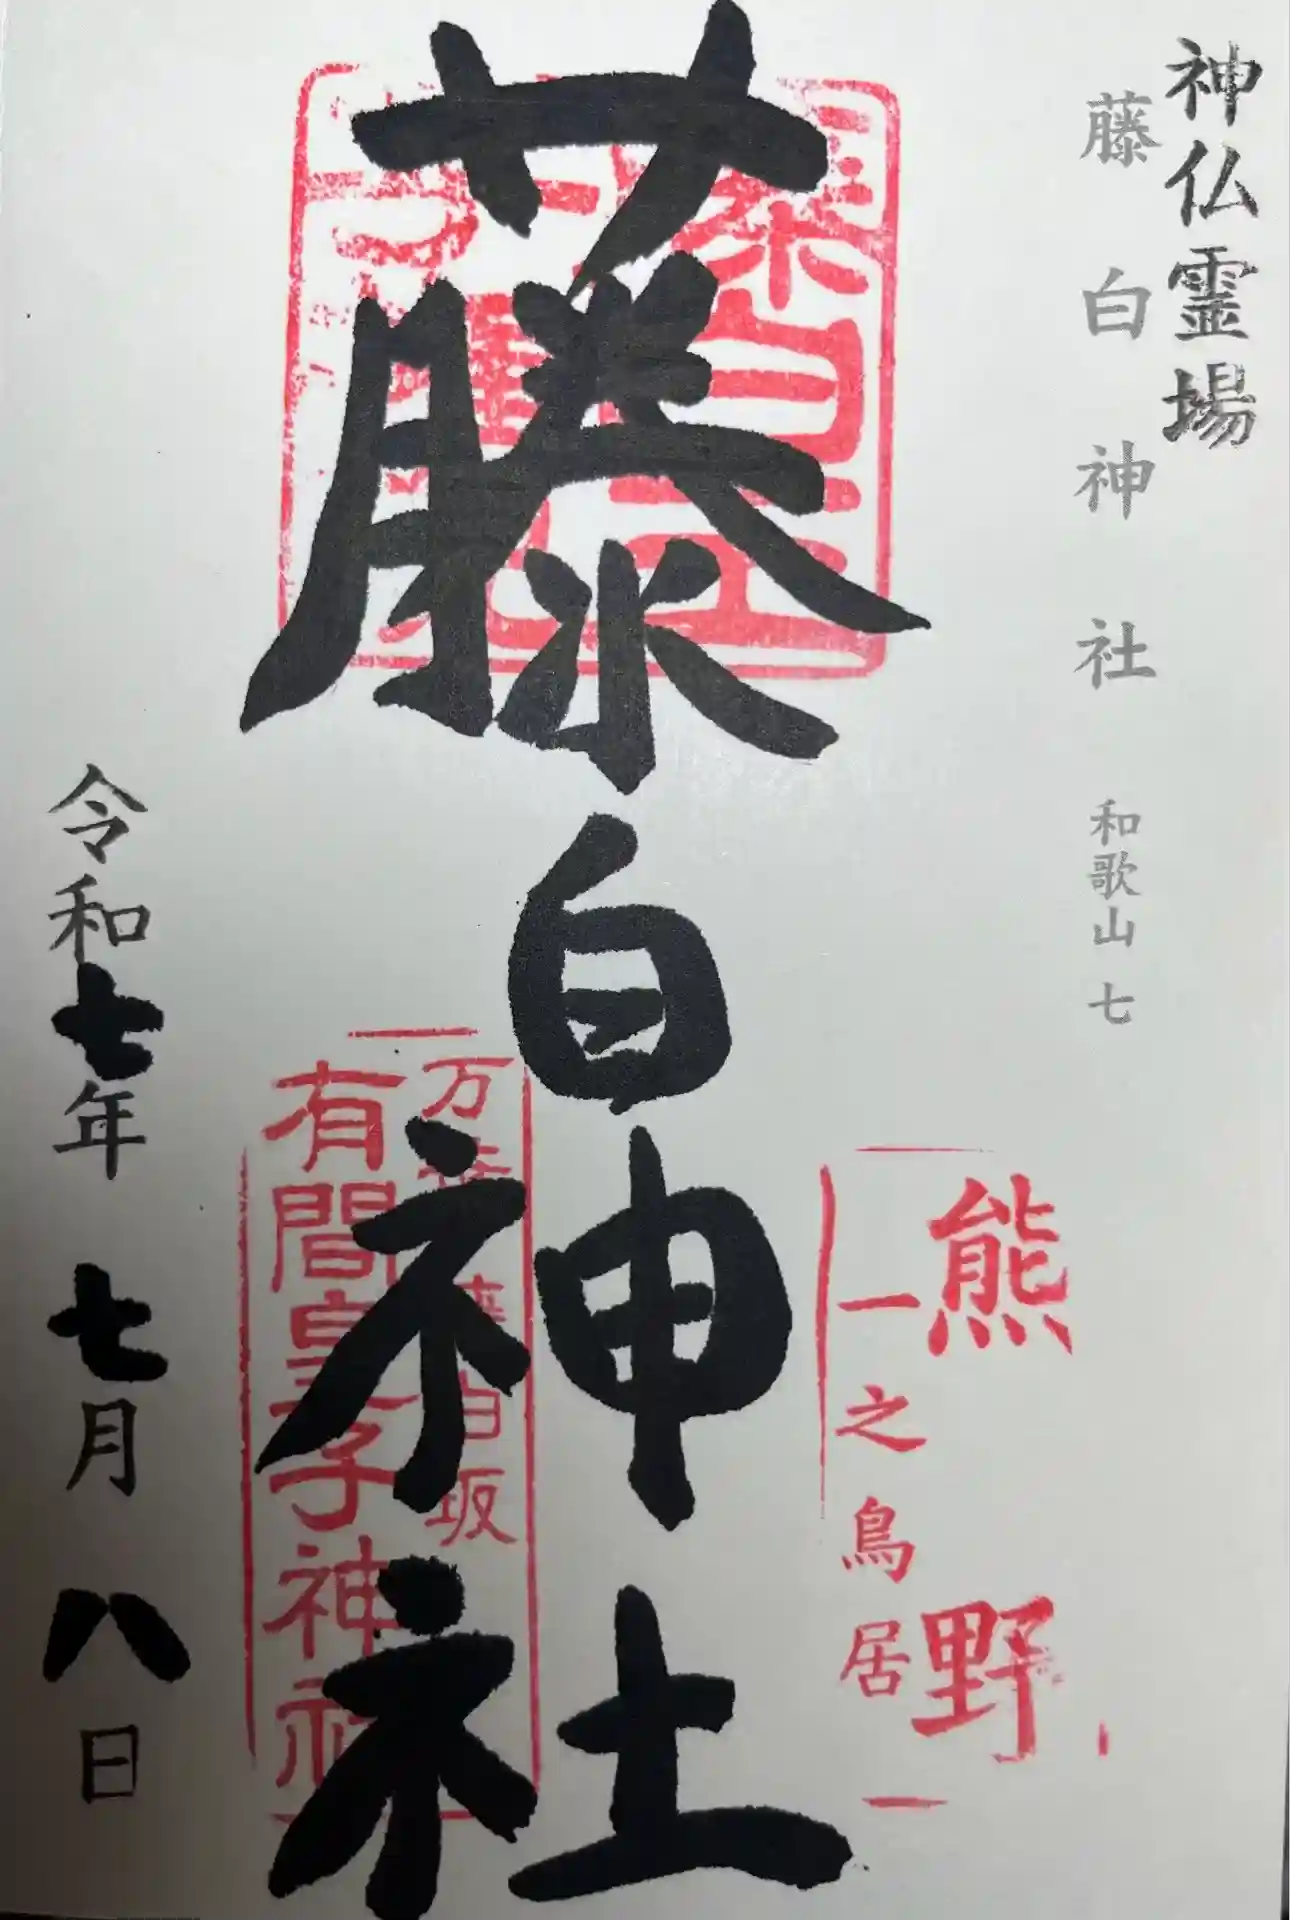 神仏霊場
藤白神社 和歌山 七
熊野
一之鳥居
藤白神社
万葉 藤白坂
有間皇子神社
令和七年 七月 八日